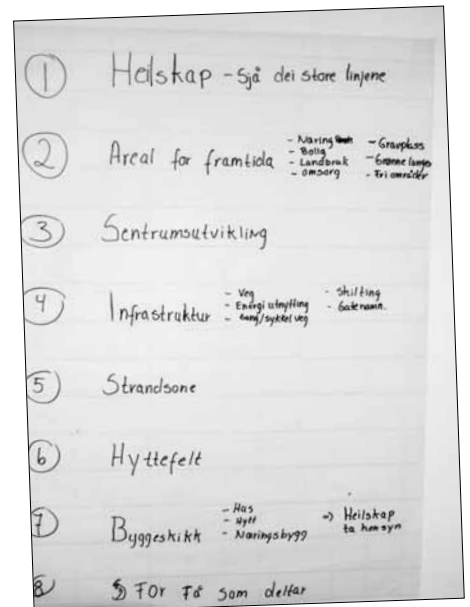 1 Heilskap - Sjå dei store linjene
2 Areal for framtida
- Næring
- Bolig
- Landbruk
- omsorg
- Gravplass
- Grønne lunger
- Fri områder
3 Sentrumsutvikling
4 Infrastruktur
- Veg
- Energi utnytting
- Gang/sykkel veg
- Skilting
- Gatenamn.
5 Strandsone
6 Hyttefelt
7 Byggeskikk
- Hus
- Hytt
- Næringsbygg
=> Heilskap
ta hensyn
8 For Få som deltar